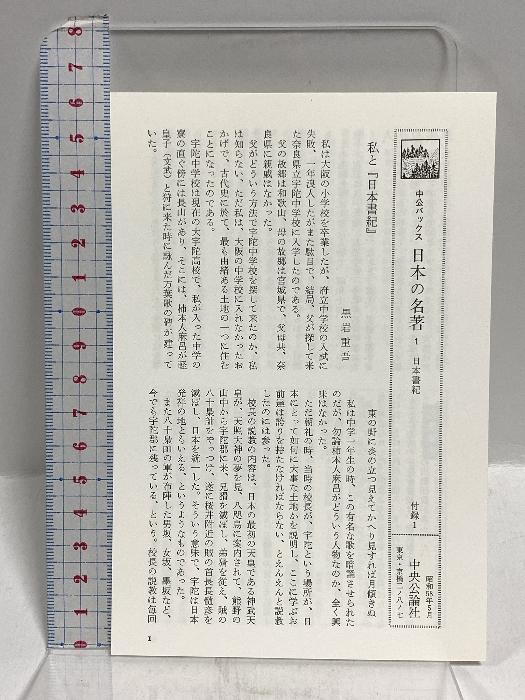 中公バックス 日本の名著 1 日本書紀
付録1
昭和58年5月
中央公論社
東京・京橋二ノ八ノ七
私と『日本書紀』
黒岩重吾
私は大阪の小学校を卒業したが、府立中学校の入試に
失敗、一年浪人したがまた駄目で、結局、父が探して来
た奈良県立宇陀中学校に入学したのである。
父の故郷は和歌山、母の故郷は宮城県で、父母共、奈
良県に親戚はなかった。
父がどういう方法で宇陀中学校を探して来たのか、私
は知らない。ただ私は、大阪の中学校に入れなかったお
かげで、古代史に於て、最も由緒ある土地の一つに住む
ことになったのである。
宇陀中学校は現在の大宇陀高校で、私が入った中学の
寮の直ぐ傍には長山があり、そこには、柿本人麻呂が軽
皇子(文武)と狩に来た時に詠んだ万葉歌の碑が建って
いた。
東の野に炎の立つ見えてかへり見すれば月傾きぬ
私は中学一年生の時、この有名な歌を暗誦させられた
のだが、勿論柿本人麻呂がどういう人物なのか、全く興
味はなかった。
ただ朝礼の時、当時の校長が、宇陀という場所が、日
本にとって如何に大事な土地かを説明し、ここに学ぶお
前達は誇りを持たなければならない、とえんえんと説教
したのには参った。
校長の説教の内容は、日本の最初の天皇である神武天
皇が、天照大神の夢を見、八咫烏に案内されて、熊野の
山中から宇陀郡に来、兄猾を滅ぼし、弟猾を従え、賊の
八十梟帥をやっつけ、遂に桜井附近の賊の首長長髄彦を
滅ぼし、日本を統一した。そういう意味で、宇陀は日本
発祥の地ともいえる、というようなものであった。
また八十梟帥の軍が布陣した男坂、女坂、墨坂など、
今でも宇陀郡に残っている、という。校長の説教は毎回
1
0 1 2 3 4 5 6 7 8 9 0 1 2 3 4 5 6 7 8